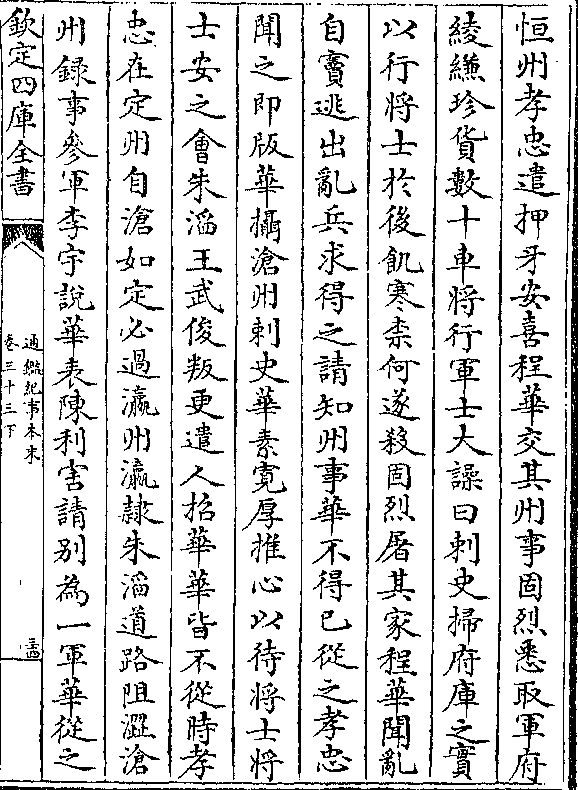 恒州孝忠遣押牙安喜程華交其州事固烈悉取軍府
綾縑珍貨數十車將行軍士大譟曰刺史掃府庫之實
以行將士於後飢寒柰何遂殺固烈屠其家程華聞亂
自竇逃出亂兵求得之請知州事華不得已從之孝忠
聞之即版華攝滄州刺史華素寛厚推心以待將士將
士安之會朱滔王武俊叛更遣人招華華皆不從時孝
忠在定州自滄如定必過瀛州瀛隷朱滔道路阻澀滄
州録事參軍李宇說華表陳利害請别為一軍華從之
欽定四庫全書
通鑑紀事本末
卷三十三下